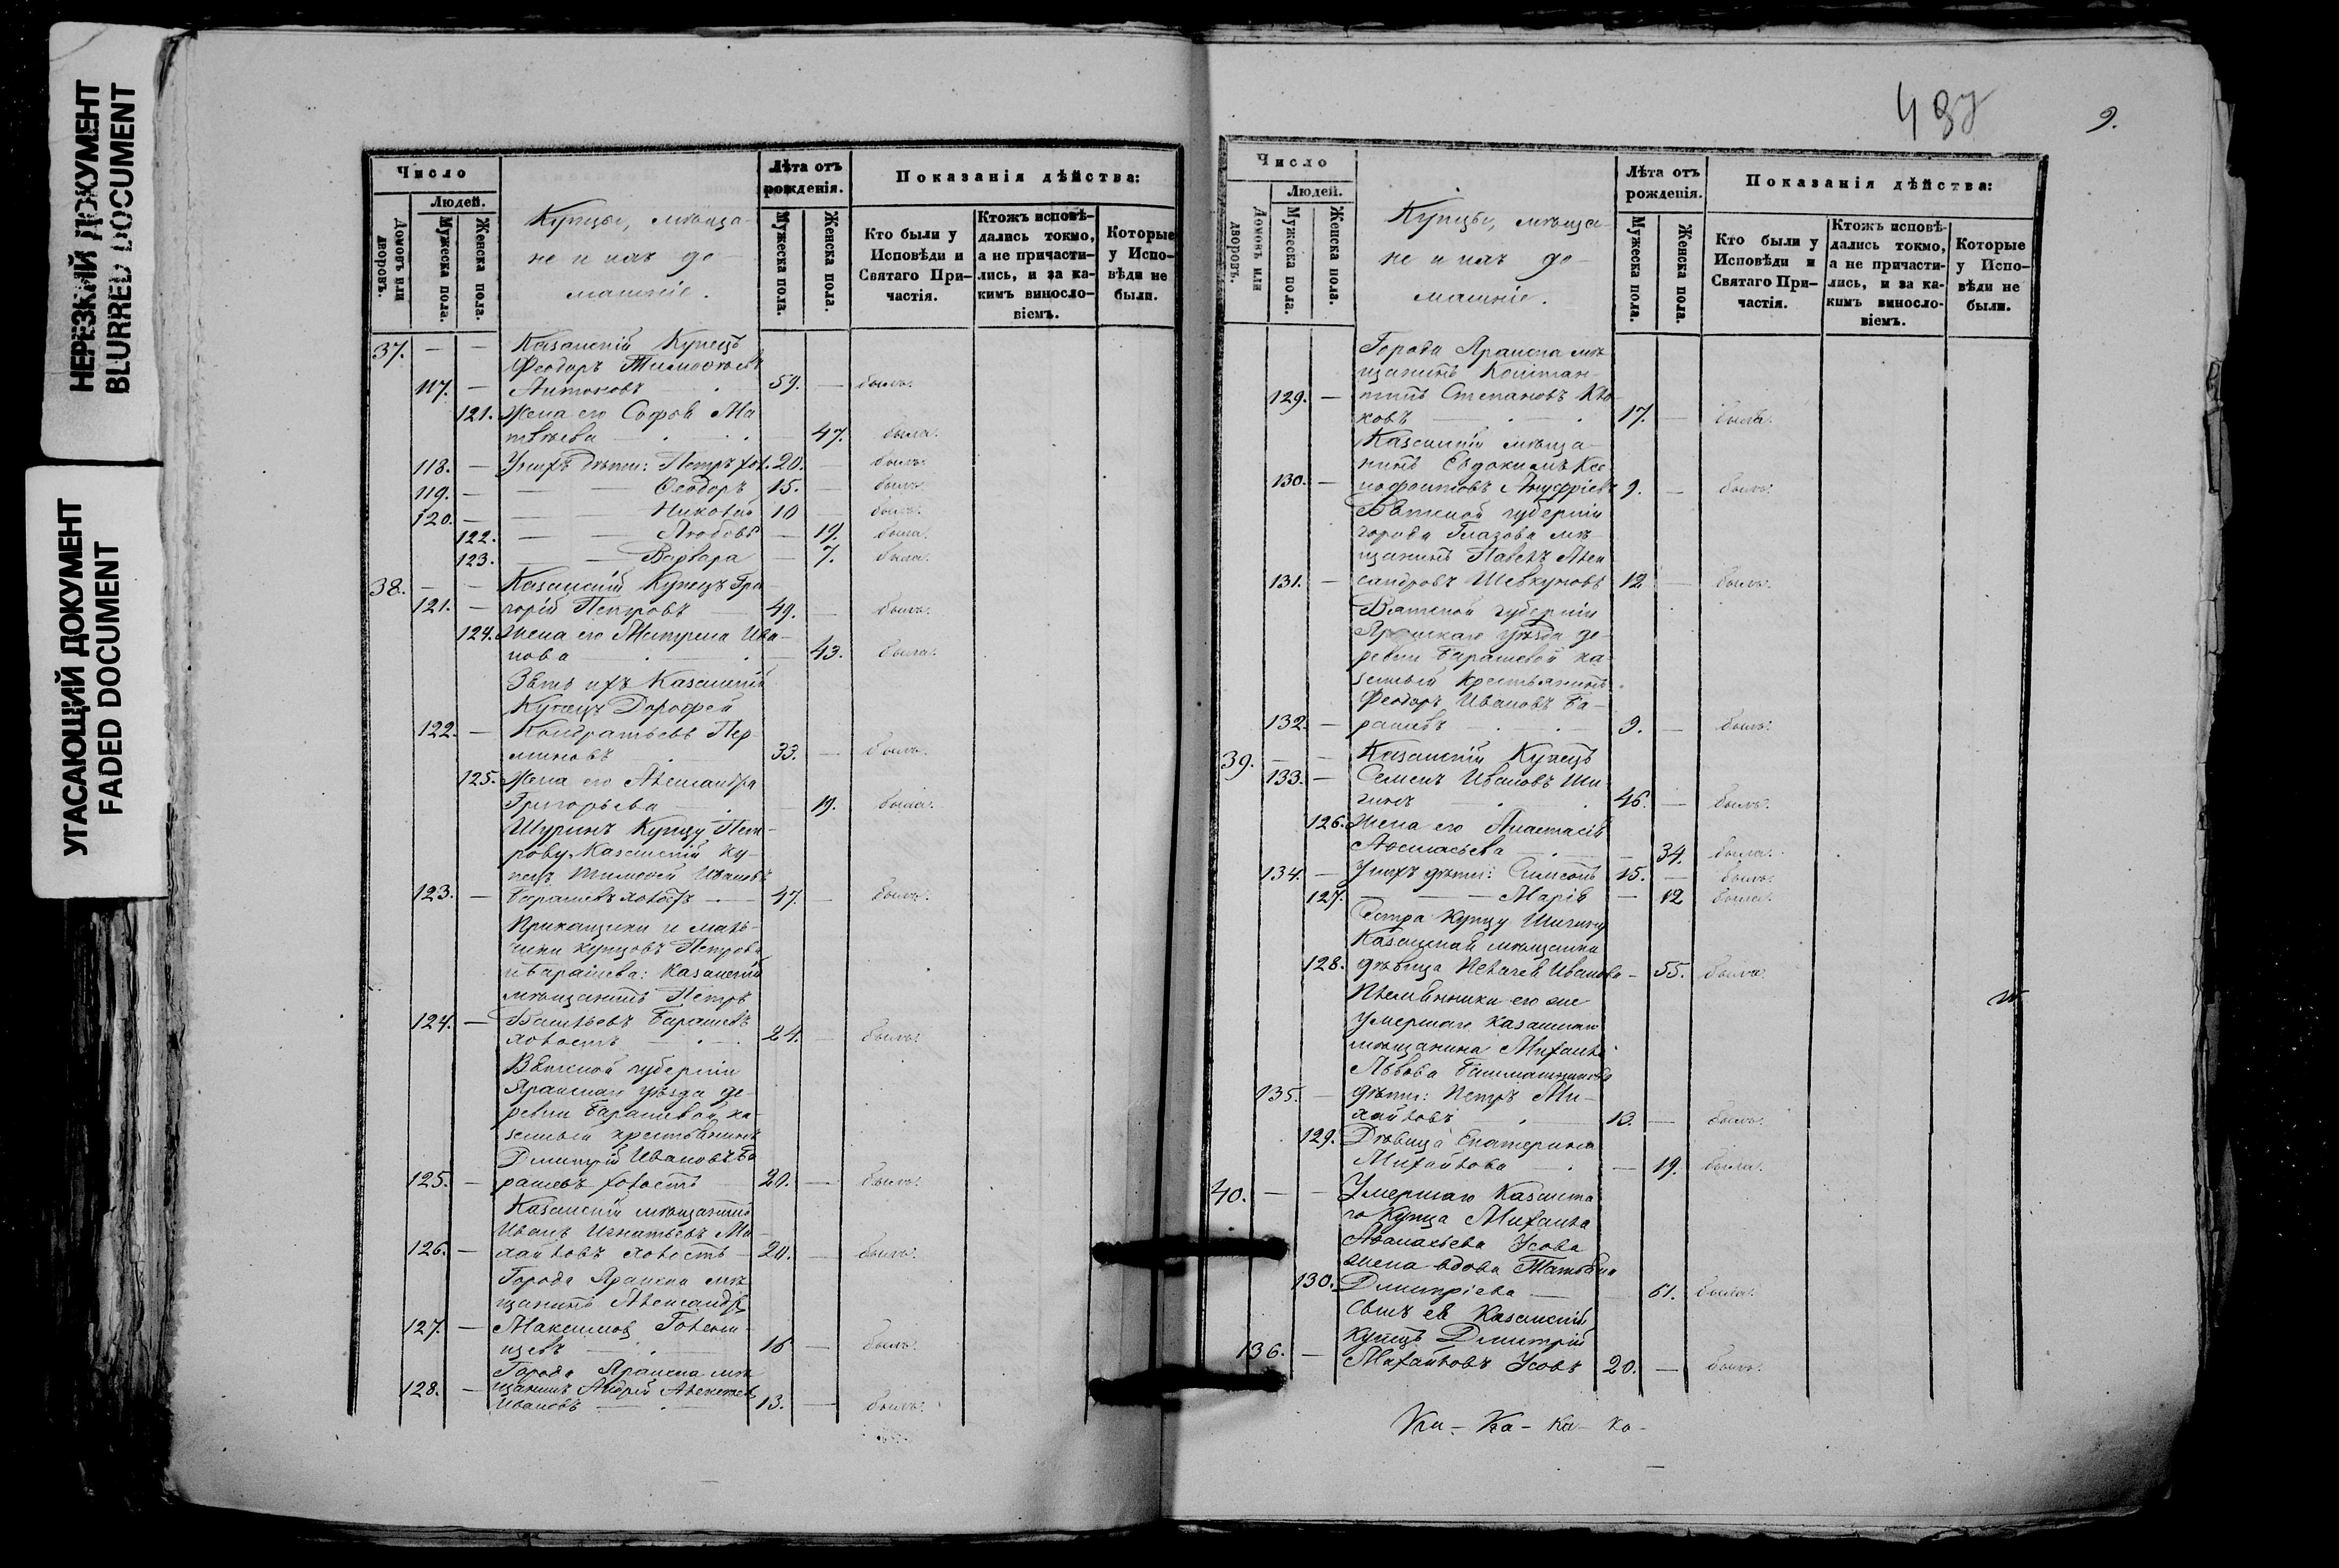 НЕРЕЗКИЙ ДОКУМЕНТ
BLURRED DOCUMENT
УГАСАЮЩИЙ ДОКУМЕНТ
FADED DOCUMENT
Число
Людей.
Домовъ или дворовъ.
Мужеска пола.
Женска пола.
Купцы, мѣща-
не и ихъ до-
машніе.
Лѣта отъ рожденія.
Мужеска пола.
Женска пола.
Показанія дѣйства:
Кто были у Исповѣди и Святаго При-частія.
Ктожъ исповѣ-дались токмо, а не причасти-лись, и за ка-кимъ винословіемъ.
Которые у Испо-вѣди не были.
37. — — Казанскій Купецъ
Феодоръ Тимоѳеевъ
117. — Антоновъ 59. — былъ.
121. Жена его Софія Ма
твѣева — 47. была.
118. — У нихъ дѣти: Петръ хол. 20. — былъ.
119. — — — Ѳеодоръ 15. — былъ
120. — — — Николай 10 — былъ.
122. — — Любовь — 19. была.
123. — — Варвара — 7. была.
38. — — Казанскій Купецъ Гри
121. — горій Петровъ — 49. — былъ.
124. Жена его Матрена Ива-
нова — 43. была.
Зять ихъ Казанскій
Купецъ Дорофей
122. — Кондратьевъ Пер
миновъ 33. — былъ.
125. Жена его Александра
Григорьева — 19. была.
Шуринъ Купцу Пет-
рову, Казанскій ку-
пецъ Тимоѳей Ивановъ
123. — Барашевъ холостъ — 47. — былъ.
Прикащики и маль-
чики купцовъ Петрова
и Барашева: Казанскій
мѣщанинъ Петръ
124. — Васильевъ Барашевъ
холостъ — 24. — былъ.
Вятской губерніи
Яранскаго уѣзда де-
ревни Барашевой, ка-
зенный крестьянинъ
Дмитрій Ивановъ Ба
125. — рашевъ холостъ — 20. — былъ.
Казанскій мѣщанинъ
Иванъ Игнатьевъ Ми-
126. — хайловъ холостъ — 20. — былъ.
Города Яранска мѣ
щанинъ Александръ
127. — Максимовъ Голени
щевъ — 16 — былъ.
Города Яранска мѣ
128. — щанинъ Андрей Алексѣевъ
Ивановъ — 13. — былъ.
9.
Число
Людей.
Домовъ или дворовъ.
Мужеска пола.
Женска пола.
Купцы, мѣща-
не и ихъ до-
машніе.
Лѣта отъ рожденія.
Мужеска пола.
Женска пола.
Показанія дѣйства:
Кто были у Исповѣди и Святаго При-частія.
Ктожъ исповѣ-дались токмо, а не причасти-лись, и за ка-кимъ винословіемъ.
Которые у Испо-вѣди не были.
Города Яранска мѣ
щанинъ Констан-
129. — тинъ Степановъ
ковъ 17. — былъ.
Казанскій мѣща-
нинъ Евдокимъ Ксе
130. — нофонтовъ Ануфріевъ 9. — былъ.
Вятской губерніи
города Глазова мѣ-
щанинъ Павелъ Алек
131. — сандровъ Шевкуновъ 12 — былъ.
Вятской губерніи
Яранскаго уѣзда де-
ревни Барашевой ка
зенный крестьянинъ
Феодоръ Ивановъ Ба-
132. — рашевъ 9. — былъ.
39. — — Казанскій Купецъ
133. — Семенъ Ивановъ Ши-
гинъ 46. — былъ.
126. Жена его Анастасія
Аѳанасьева — 34. была.
134. — У нихъ дѣти: Симеонъ 15. — былъ.
127. — — Марія — 12 была.
Сестра Купцу Шигину
Казанская мѣщанка
128. дѣвица Пелагея Иванова — 55. была.
Племянники его же
умершаго Казанскаго
мѣщанина Михаила
Львова Башмашникова
135. — дѣти: Петръ Ми-
хайловъ 13. — былъ.
129. Дѣвица Екатерина
Михайлова — 19. была.
40. — — Умершаго Казанска
го Купца Михаила
Аѳанасьева Усова
жена вдова Татьяна
130. Дмитріева — 61. была.
Сынъ ея Казанскій
купецъ Дмитрій
136. — Михайловъ Усовъ 20. — былъ.
Ка - Ка - Ка - Ка -